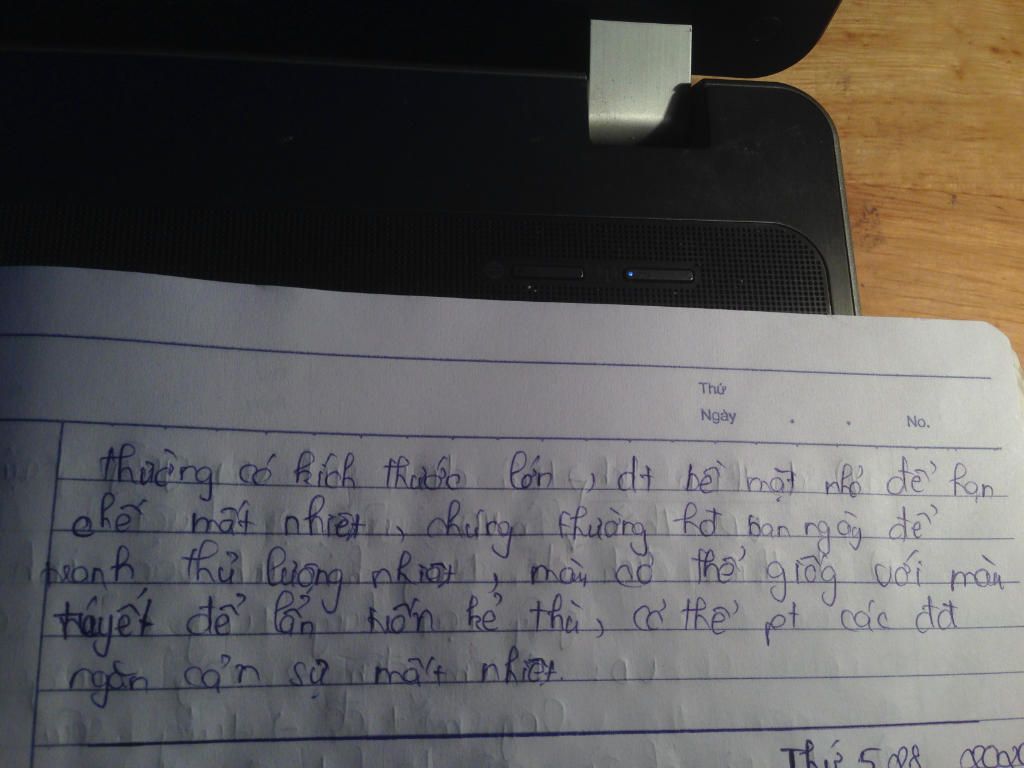 Thứ
Ngày . . No.
thường có kích thước lớn, dt bề mặt nhỏ để hạn
chế mất nhiệt, chúng thường hđ ban ngày để
tranh thử lượng nhiệt, màu cơ thể giống với màu
tuyết để lẩn trốn kẻ thù, cơ thể pt các đđ
ngăn cản sự mất nhiệt.
Thứ 5